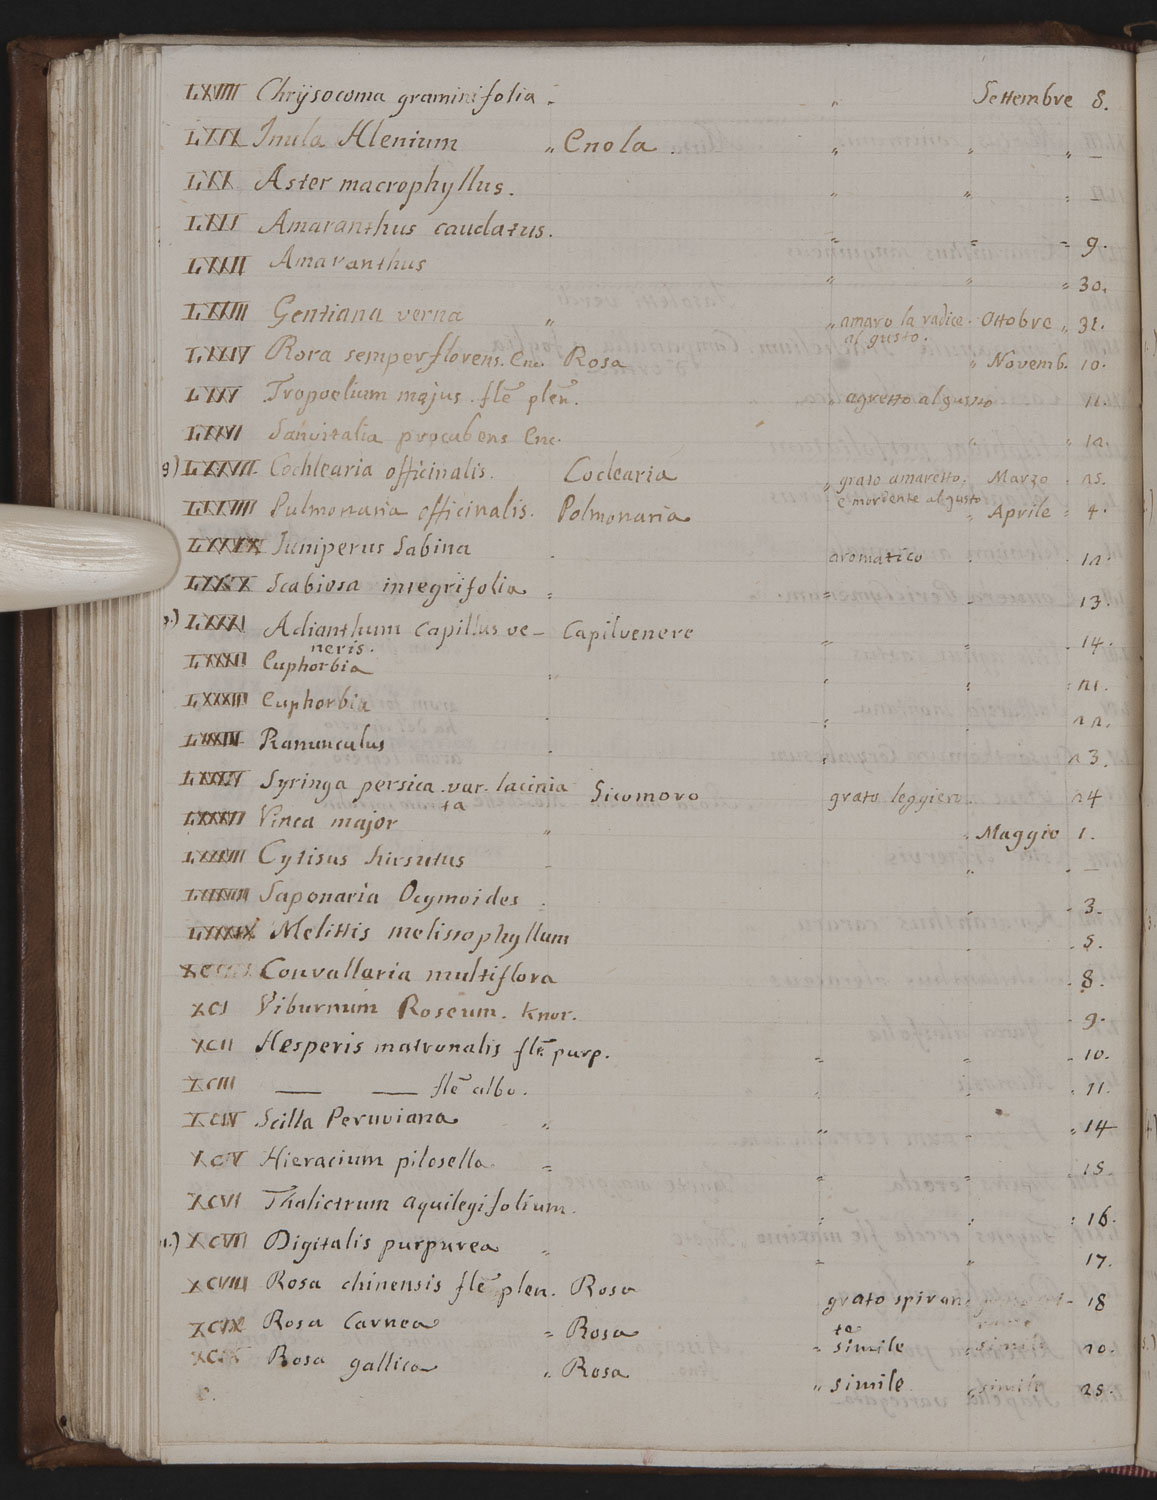 LXVIII Chrÿsocoma graminifolia . " Settembre 8.
LXIX Inula Hlenium " Enola . " " " —
LXX Aster macrophyllus . " " "
LXXI Amaranthus caudatus. " " " 9.
LXXII Amaranthus " " " 30.
LXXIII Gentiana verna " " amaro la radice . Ottobre " 31.
al gusto.
LXXIV Rora semperflorens. Enc. Rosa " Novemb. 10.
LXXV Tropoelium majus . fle plen. " agretto al gusto 11.
LXXVI Sanvitalia procubens Enc. " " 12.
9) LXXVII. Cochlearia officinalis. Coclearia " grato amaretto, Marzo . 25.
e mordente al gusto
LXXVIII Pulmonaria officinalis. Polmonaria " Aprile " 4.
LXXIX Iuniperus Sabina . aromatico . . 12.
LXXX Scabiosa integrifolia " " " 13.
LXXXI Adianthum Capillus ve- Capilvenere " " . 14.
neris.
LXXXII Euphorbia " " " " 21.
LXXXIII Euphorbia . " . 22.
LXXXIV Ranunculus . " 23.
LXXXV Syringa persica var. lacinia Sicomoro grato leggiero . 24
ta
LXXXVI Vinca major " . Maggio 1.
LXXXVII Cytisus hirsutus " —
LXXXVIII Saponaria Ocymoides . . . 3.
LXXXIX Melittis melissophyllum . . 5.
XC Convallaria multiflora . . 8.
XCI Viburnum Roseum. Knor. . 9.
XCII Hesperis matronalis fle purp. " " . 10.
XCIII — — fle albo. " . . 11.
XCIV Scilla Peruviana " " . " 14
XCV Hieracium pilosella " " " 15
XCVI Thalictrum aquilegifolium . : . : 16.
XCVII Digitalis purpurea " " " 17.
XCVIII Rosa chinensis fle plen. Rosa grato spiran - 18
te
XCIX Rosa Carnea " Rosa " simile simile 20.
Rosa gallica " Rosa " simile simile 25.
C.